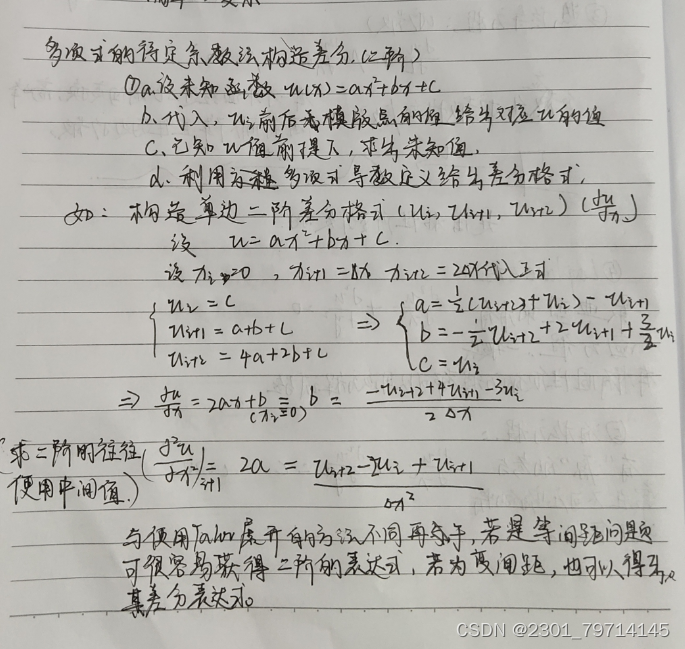 多项式的待定系数法构造差分(二阶)
①a.设未知函数 u(x)=ax²+bx+c
b.代入,ui前后模版点的值给出对应u的值
c.已知u值前提下,求出未知值.
d.利用多项式导数定义给出差分格式.
如:构造单边二阶差分格式(ui,ui+1,ui+2)(∂u/∂x)
设 u=ax²+bx+c.
设xi=0,xi+1=Δx xi+2=2Δx代入上式
{ ui=c ⇒ { a=½(ui+2+ui)-ui+1
ui+1=a+b+c b=-½ui+2+2ui+1+3/2ui
ui+2=4a+2b+c c=ui
⇒ ∂u/∂x=2ax+b = b = (-ui+2+4ui+1-3ui)/(2Δx)
(xi=0)
求二阶的往往使用中间值.) (∂²u/∂x²)i+1 = 2a = (ui+2-2ui+ui+1)/Δx²
与使用Taylor展开的方法不同再于,若是等间距问题
可很容易获得二阶的表达式,若为变间距,也可以得到
其差分表达式。
CSDN @2301_79714145